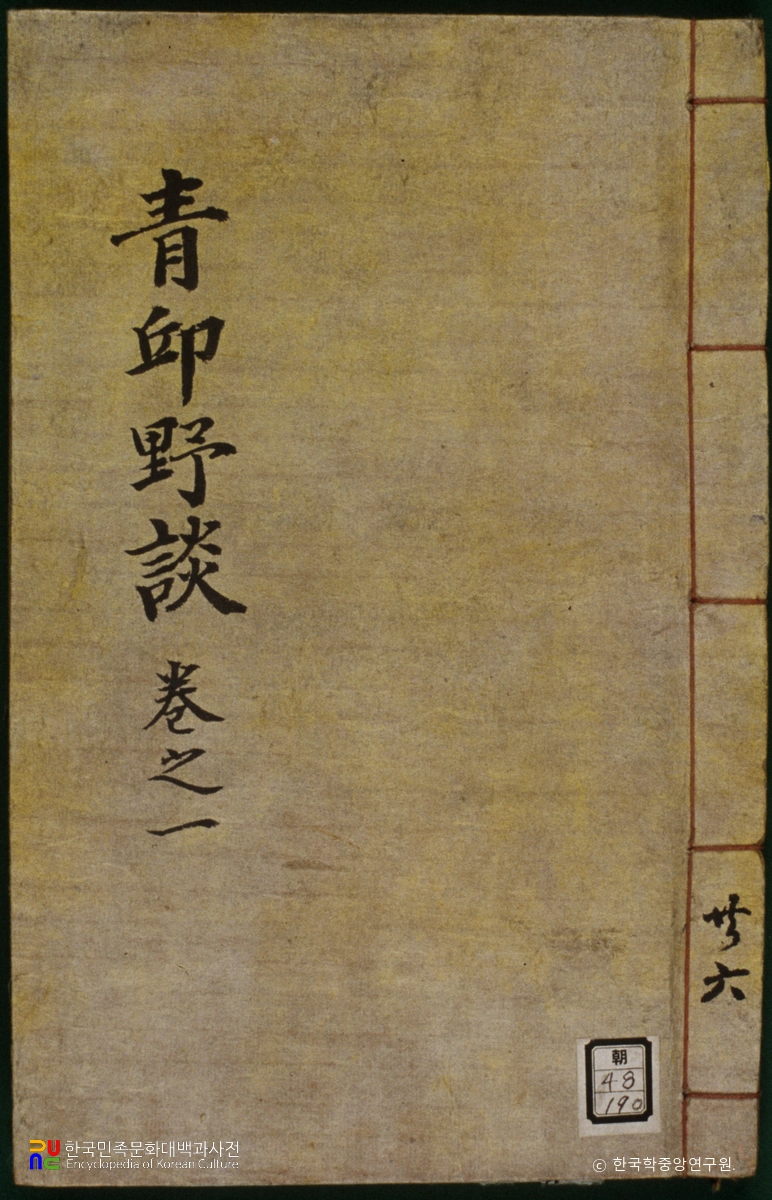 青邱野談 卷之一
共六
朝
48
190
한국민족문화대백과사전
Encyclopedia of Korean Culture
© 한국학중앙연구원.